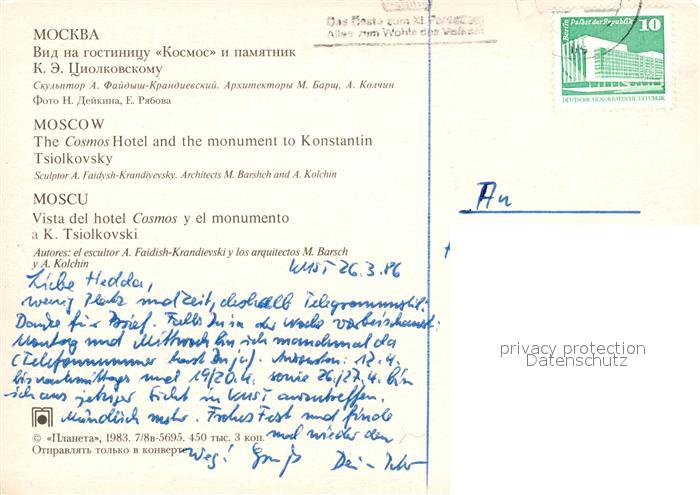 МОСКВА
Вид на гостиницу «Космос» и памятник
К. Э. Циолковскому
Скульптор А. Файдыш-Крандиевский. Архитекторы М. Барщ, А. Колчин
Фото Н. Дейкина, Е. Рябова
MOSCOW
The Cosmos Hotel and the monument to Konstantin
Tsiolkovsky
Sculptor A. Faidysh-Krandiyevsky. Architects M. Barshch and A. Kolchin
MOSCU
Vista del hotel Cosmos y el monumento
a K. Tsiolkovski
Autores: el escultor A. Faidish-Krandievski y los arquitectos M. Barsch
y A. Kolchin
Das Beste zum XI. Parteitag
Alles zum Wohle des Volkes
Berlin Palast der Republik 10
DEUTSCHE DEMOKRATISCHE REPUBLIK
An
26.3.86
Liebe Hedda,
wenig Platz und Zeit, deshalb Telegrammstil:
Danke für Brief. Falls Du in der Woche vorbeischaust:
Montag und Mittwoch bin ich manchmal da
(Telefonnummer hast Du ja). Ansonsten: 12.4.
bis nachmittags und 19/20.4. sowie 26./27.4. bin
ich aus jetziger Sicht in anzutreffen.
Mündlich mehr. Frohes Fest und finde
mal wieder den
Weg! Dein
© «Планета», 1983. 7/8в-5695. 450 тыс. 3 коп.
Отправлять только в конверте
privacy protection
Datenschutz